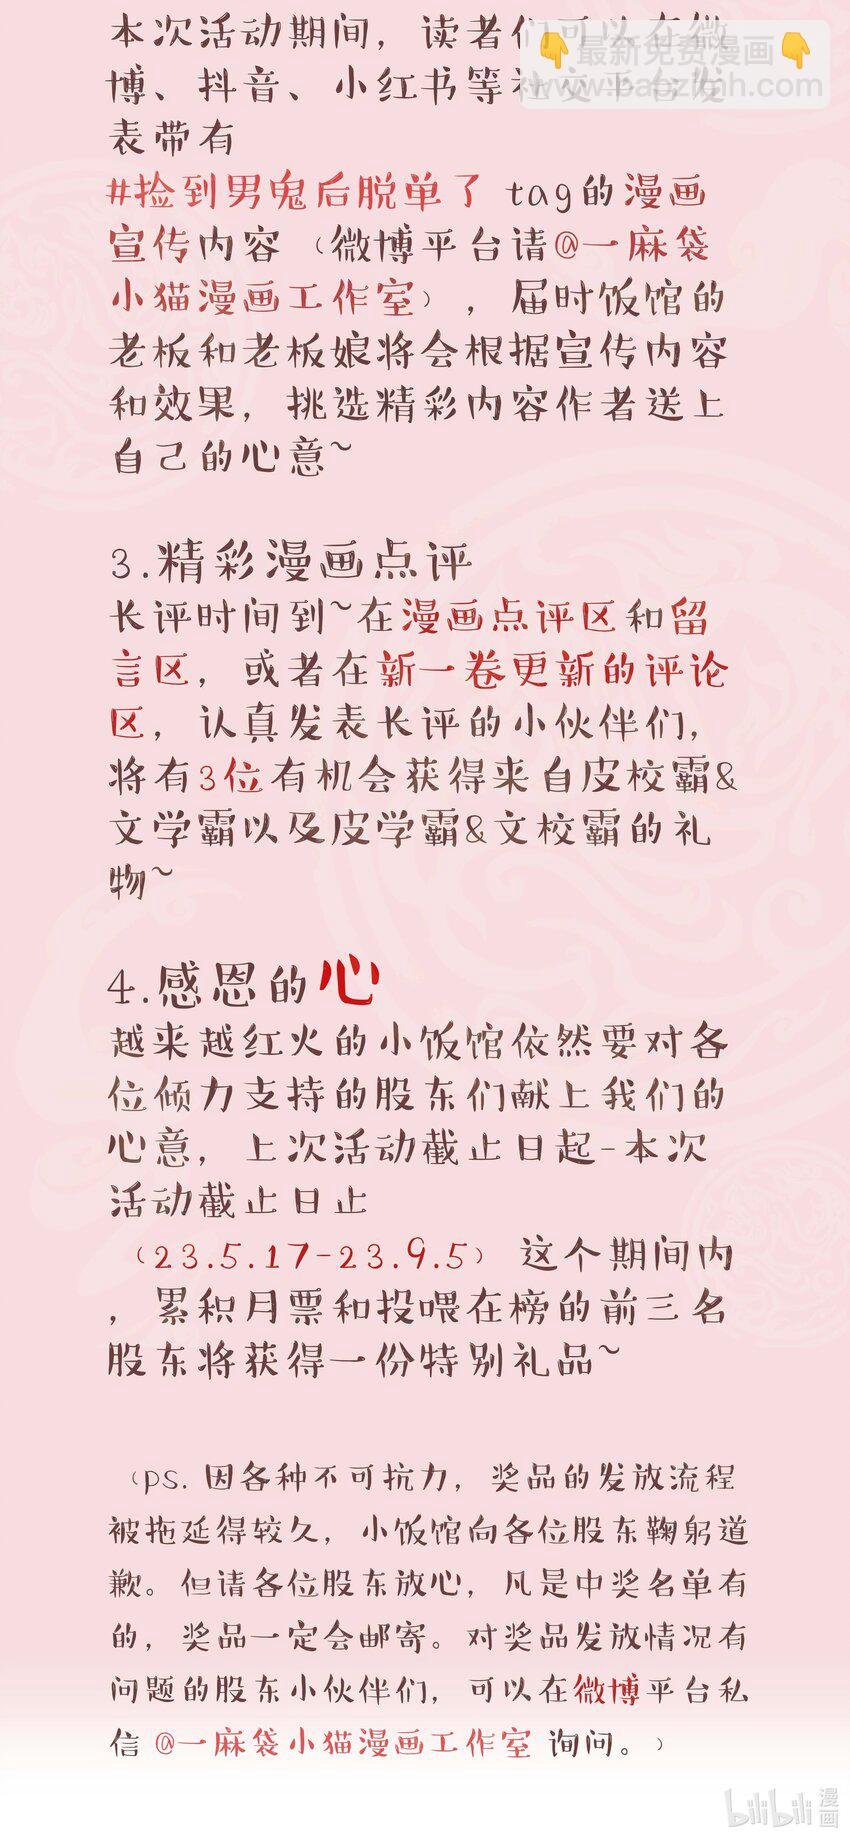 本次活动期间，读者们可以在微
👇最新免费漫画👇
博、抖音、小红书等社交平台发
www.baozimh.com
表带有
#捡到男鬼后脱单了 tag的漫画
宣传内容（微博平台请@一麻袋
小猫漫画工作室），届时饭馆的
老板和老板娘将会根据宣传内容
和效果，挑选精彩内容作者送上
自己的心意~
3.精彩漫画点评
长评时间到~在漫画点评区和留
言区，或者在新一卷更新的评论
区，认真发表长评的小伙伴们，
将有3位有机会获得来自皮校霸&
文学霸以及皮学霸&文校霸的礼
物~
4.感恩的心
越来越红火的小饭馆依然要对各
位倾力支持的股东们献上我们的
心意，上次活动截止日起-本次
活动截止日止
（23.5.17-23.9.5）这个期间内
，累积月票和投喂在榜的前三名
股东将获得一份特别礼品~
（ps.因各种不可抗力，奖品的发放流程
被拖延得较久，小饭馆向各位股东鞠躬道
歉。但请各位股东放心，凡是中奖名单有
的，奖品一定会邮寄。对奖品发放情况有
问题的股东小伙伴们，可以在微博平台私
信 @一麻袋小猫漫画工作室 询问。）
bilibili 漫画